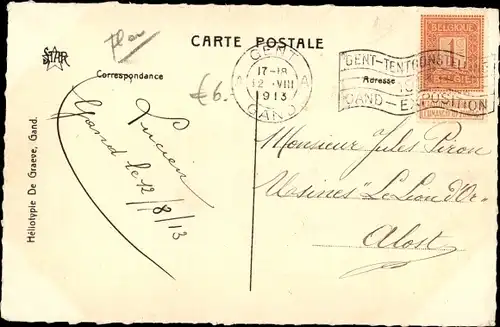 STAR
CARTE POSTALE
Correspondance
€6.-
GENT A
17-18
12 VIII
1913
GAND
GENT-TENTOONSTELLING
GAND-EXPOSITION
BELGIQUE
1
Adresse
Lucien
Gand le 12/8/13
Monsieur Jules Piron
Usines "Le Lion d'Or"
Alost
Héliotypie De Graeve, Gand.